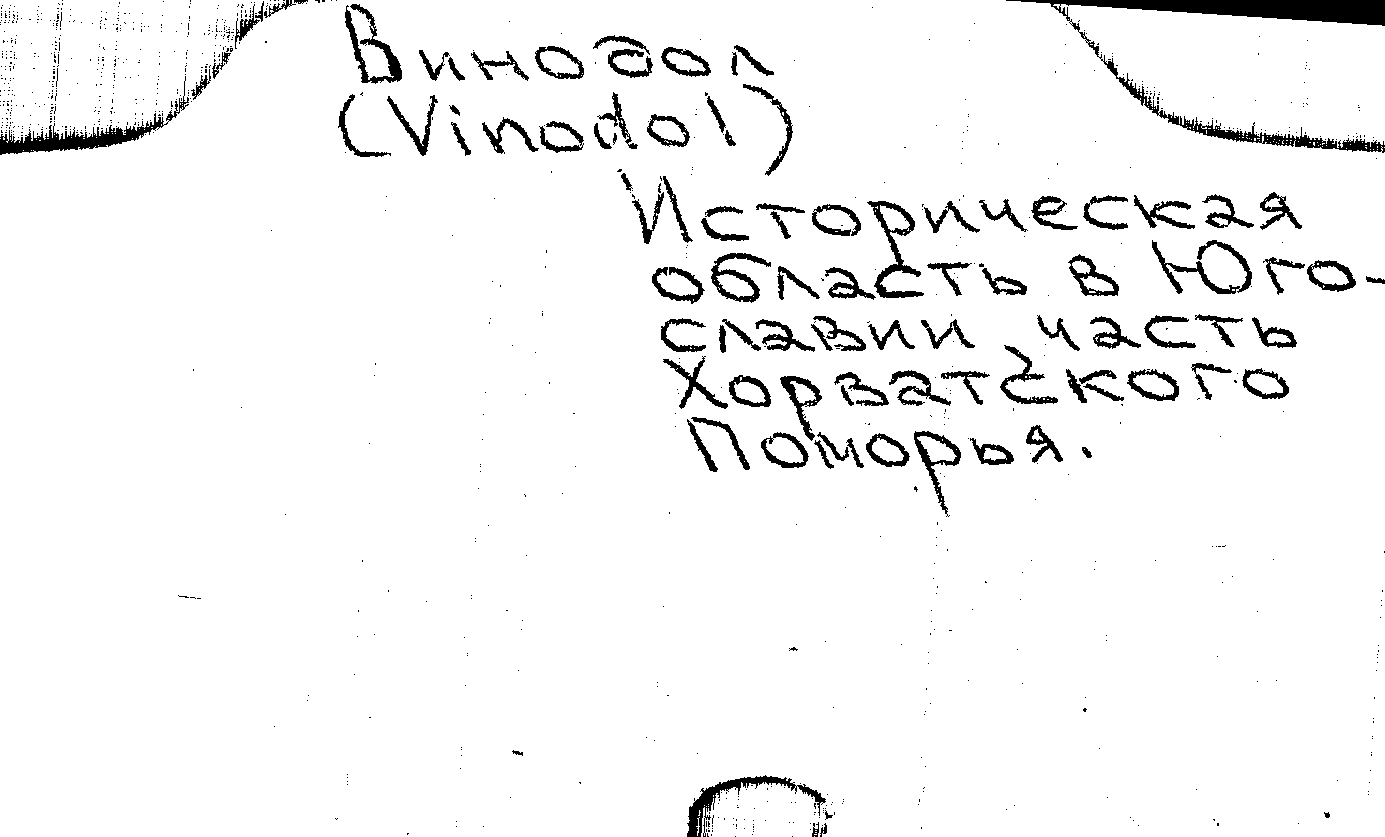 Винодол
(Vinodol)
Историческая
область в Юго-
славии, часть
Хорватского
Поморья.